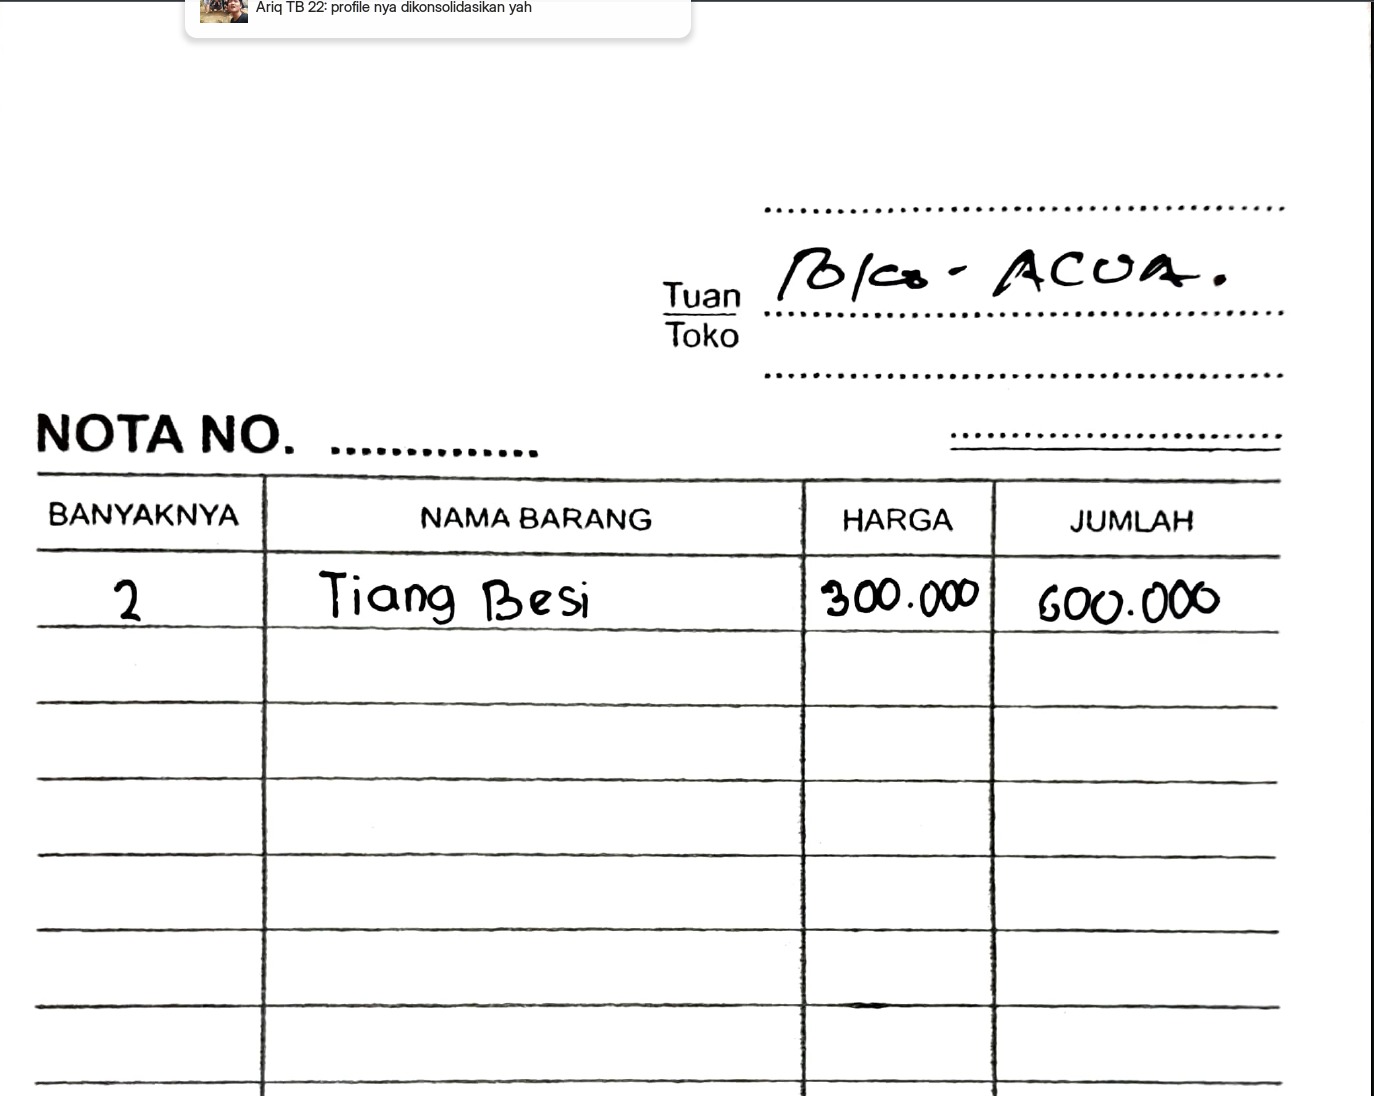 Ariq TB 22: profile nya dikonsolidasikan yah
Tuan
Toko
ACUA.
NOTA NO.
BANYAKNYA NAMA BARANG HARGA JUMLAH
2 Tiang Besi 300.000 600.000